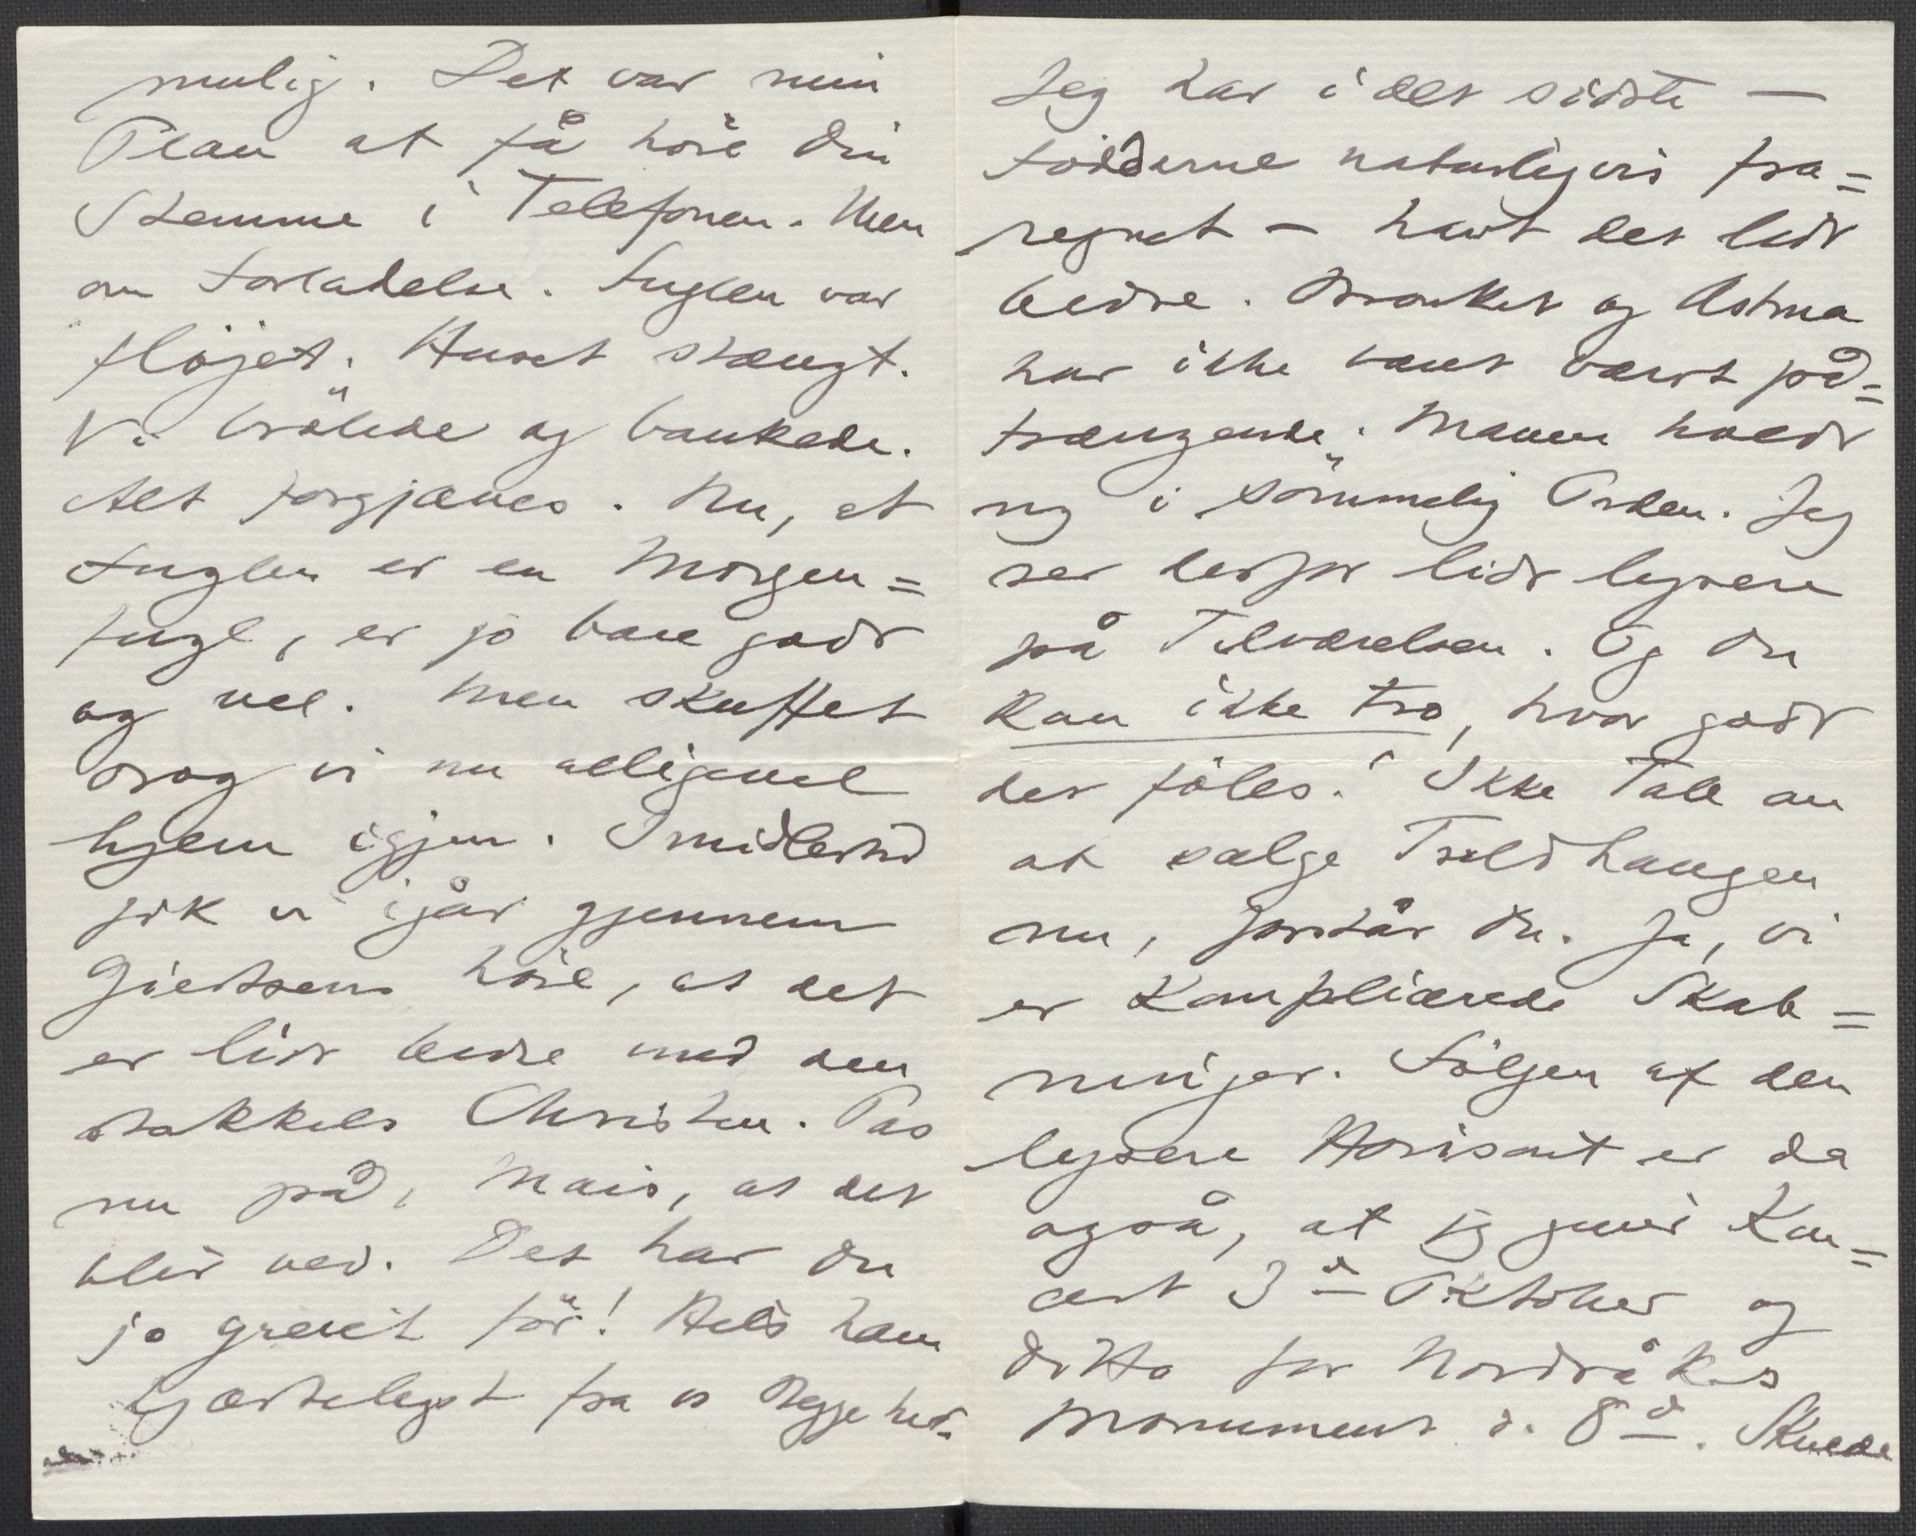 mulig. Det var min
Plan at få høre Din
Stemme i Telefonen. Men
om Forladelse. Fuglen var
fløjet. Huset stængt.
Vi brølede og bankede.
Alt forgjæves. Nu, at
Fuglen er en Morgen=
fugl, er jo bare godt
og vel. Men skuffet
drog vi nu alligevel
hjem igjen. Imidlertid
fik vi igår gjennem
Giertsens høre, at det
er lidt bedre med den
stakkels Christen. Pas
nu på, Mais, at det
blir ved. Det har Du
jo greiet før! Hils ham
hjærteligst fra os begge her.
Jeg har i det sidste —
Fødderne naturligvis fra=
regnet — havt det lidt
bedre. Bronkit og Astma
har ikke været så på=
trængende. Maven holdt
sig i sømmelig Orden. Jeg
ser derfor lidt lysere
på Tilværelsen. Og Du
kan ikke tro, hvor godt
det føles! Ikke Tale om
at sælge Troldhaugen
nu, forstår Du. Ja, vi
er komplicerede Skab=
ninger. Følgen af den
lysere Horisont er da
også, at jeg giver Kon=
cert 3d Oktober og
ditto for Nordråks
Monument d. 8d. Skulde